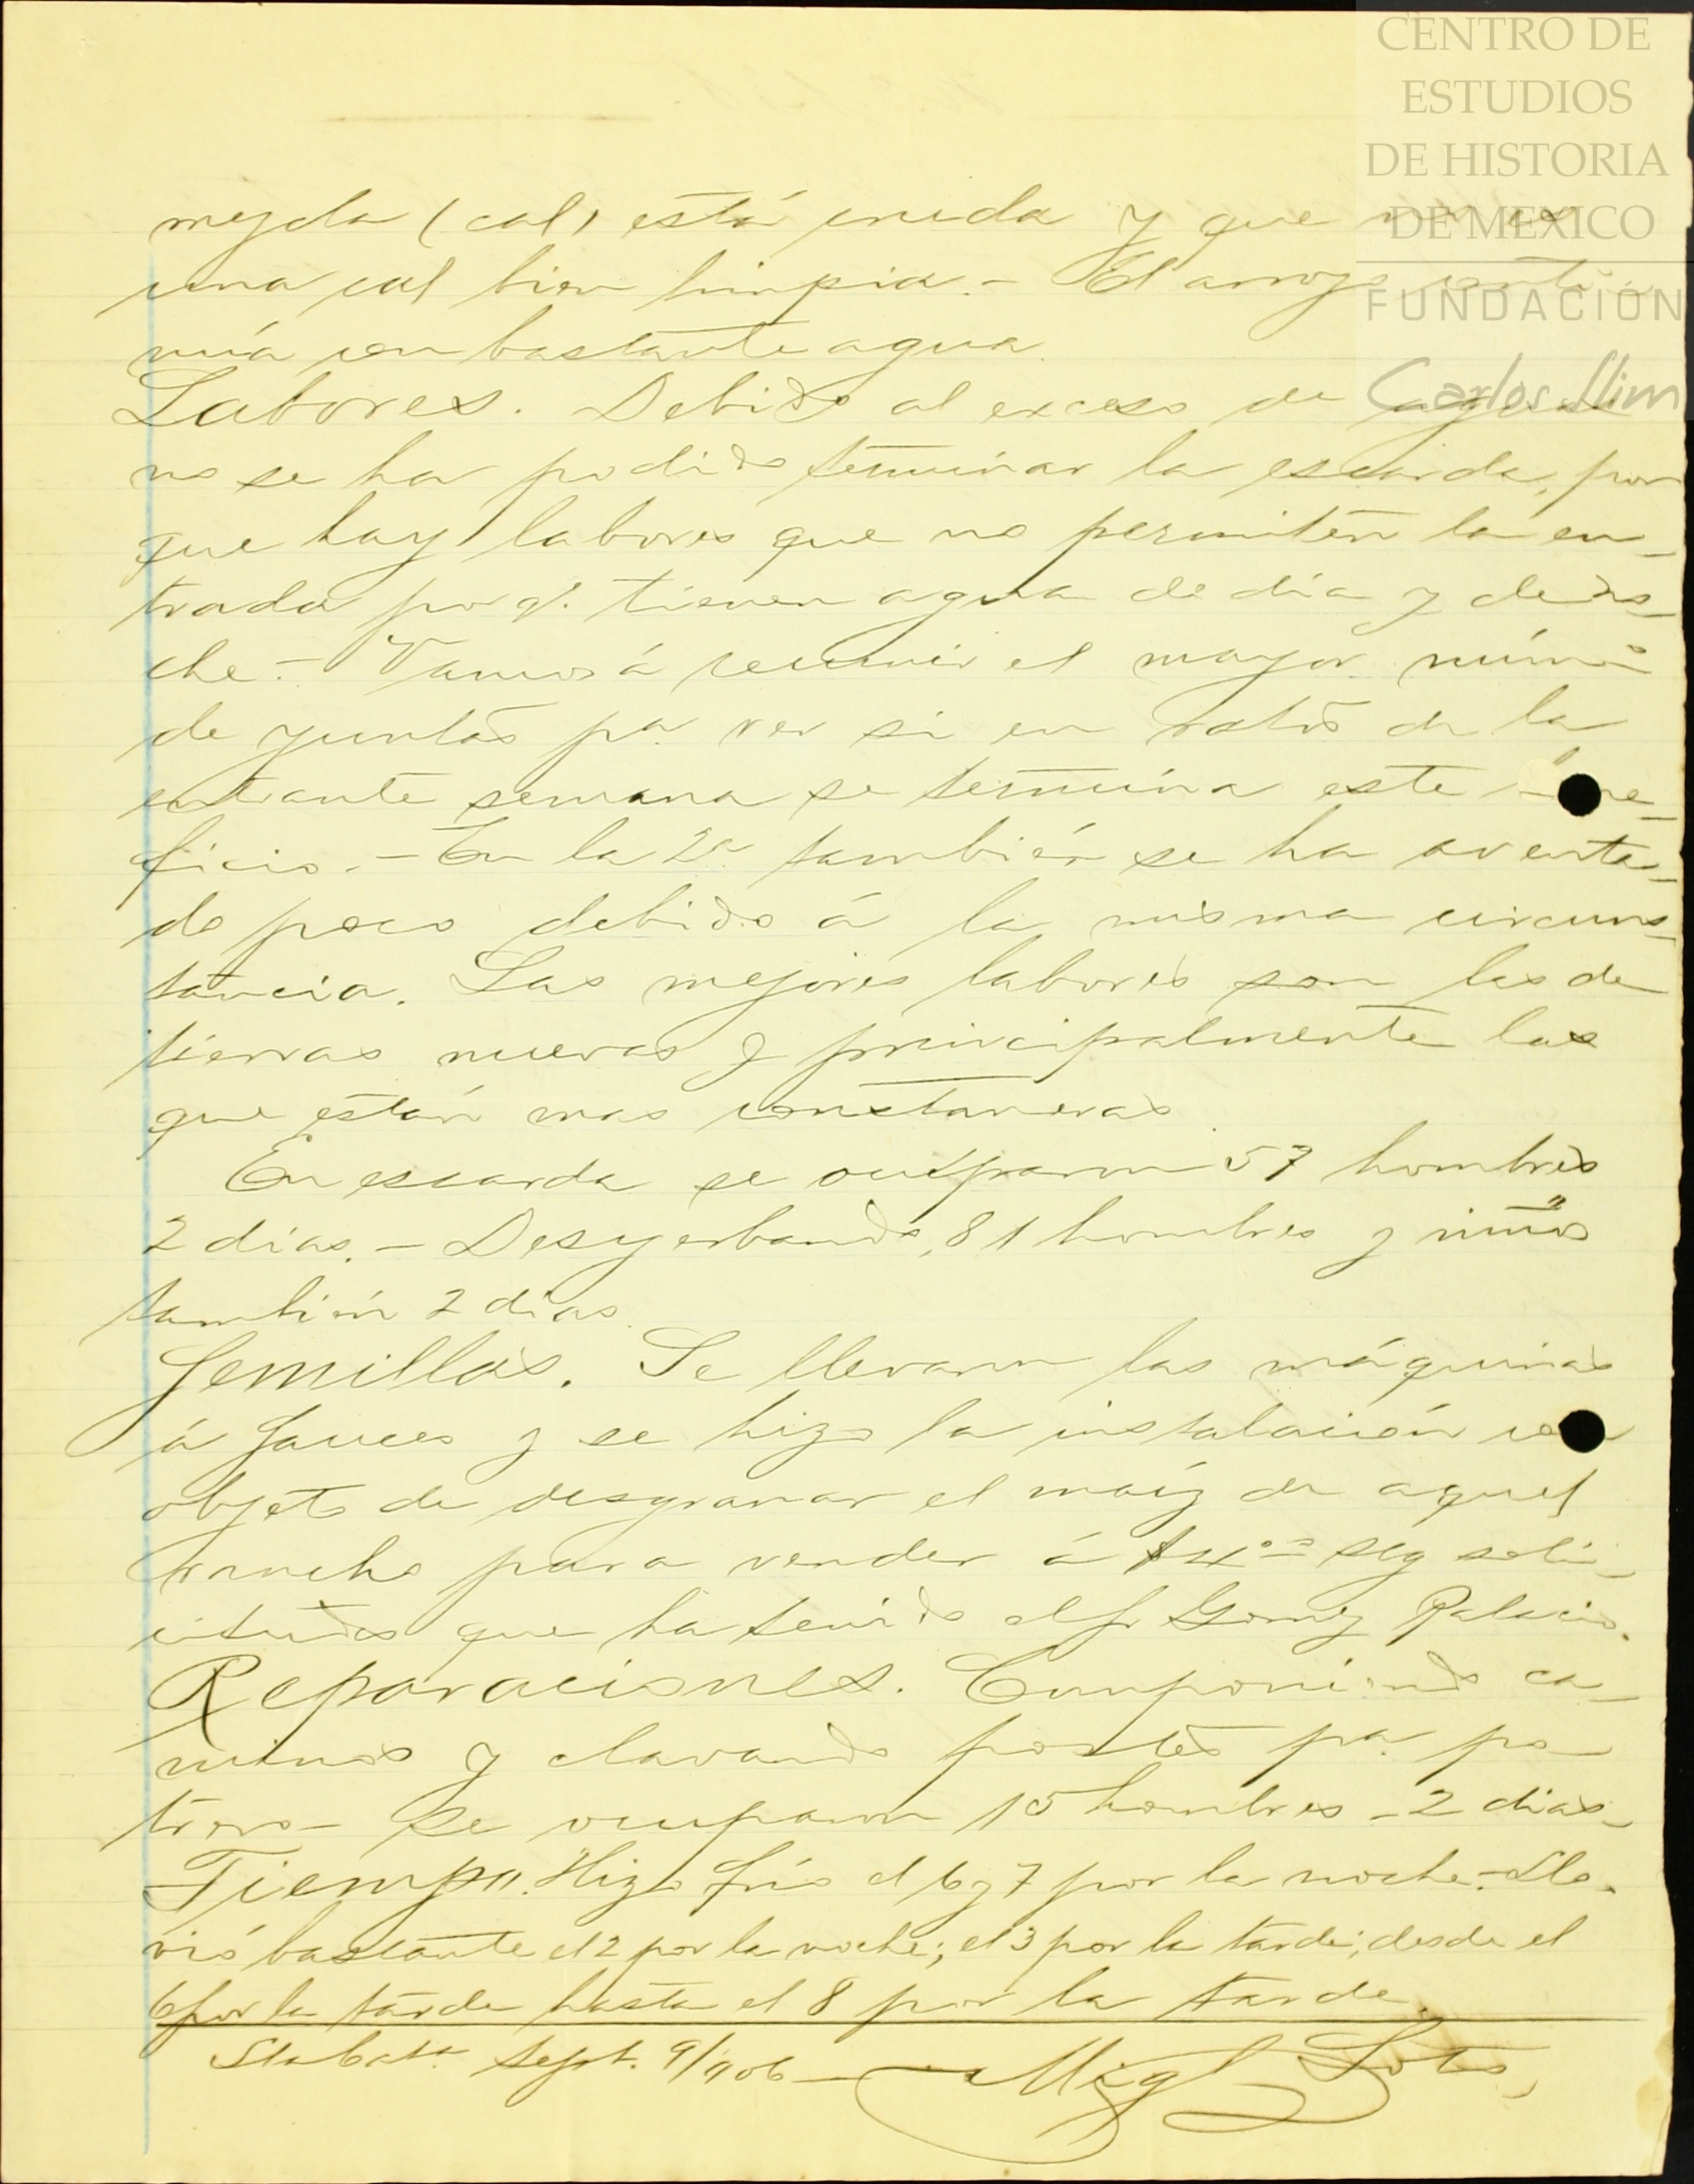 CENTRO DE
ESTUDIOS
DE HISTORIA
DE MEXICO
FUNDACIÓN
Carlos Slim
mezcla (cal) está cruda y que no es
una cal bien limpia.- El arroyo conti-
núa con bastante agua.
Labores. Debido al exceso de agua
no se ha podido terminar la escarda, por
que hay labores que no permiten la en-
trada porq. tienen agua de dia y de no-
che.- Vamos á reunir el mayor núm.o
de yuntas pa. ver si en ratos de la
entrante semana se termina este
ficio.- En la 2a. tambien se ha aventa-
do poco debido á la misma circuns-
tancia. Las mejores labores son las de
tierras nuevas y principalmente las
que están mas
En escarda se ocuparon 57 hombres
2 dias.- Desyerbando, 81 hombres y niños
tambien 2 dias.
Semillas. Se llevaron las máquinas
á Sauces y se hizo la instalación con
objeto de desgranar el maíz de aquel
rancho para vender á $4.00 seg soli-
citudes que ha tenido el Sr Gomez Palacio.
Reparaciones. Componiendo ca-
minos y clavando postes pa. po-
trero- se ocuparon 15 hombres - 2 dias-
Tiempo. Hizo frío el 6 y 7 por la noche.- Llo-
vió bastante el 2 por la noche; el 3 por la tarde; desde el
6 por la tarde hasta el 8 por la tarde.
Sept. 9/906- Migl Soto,